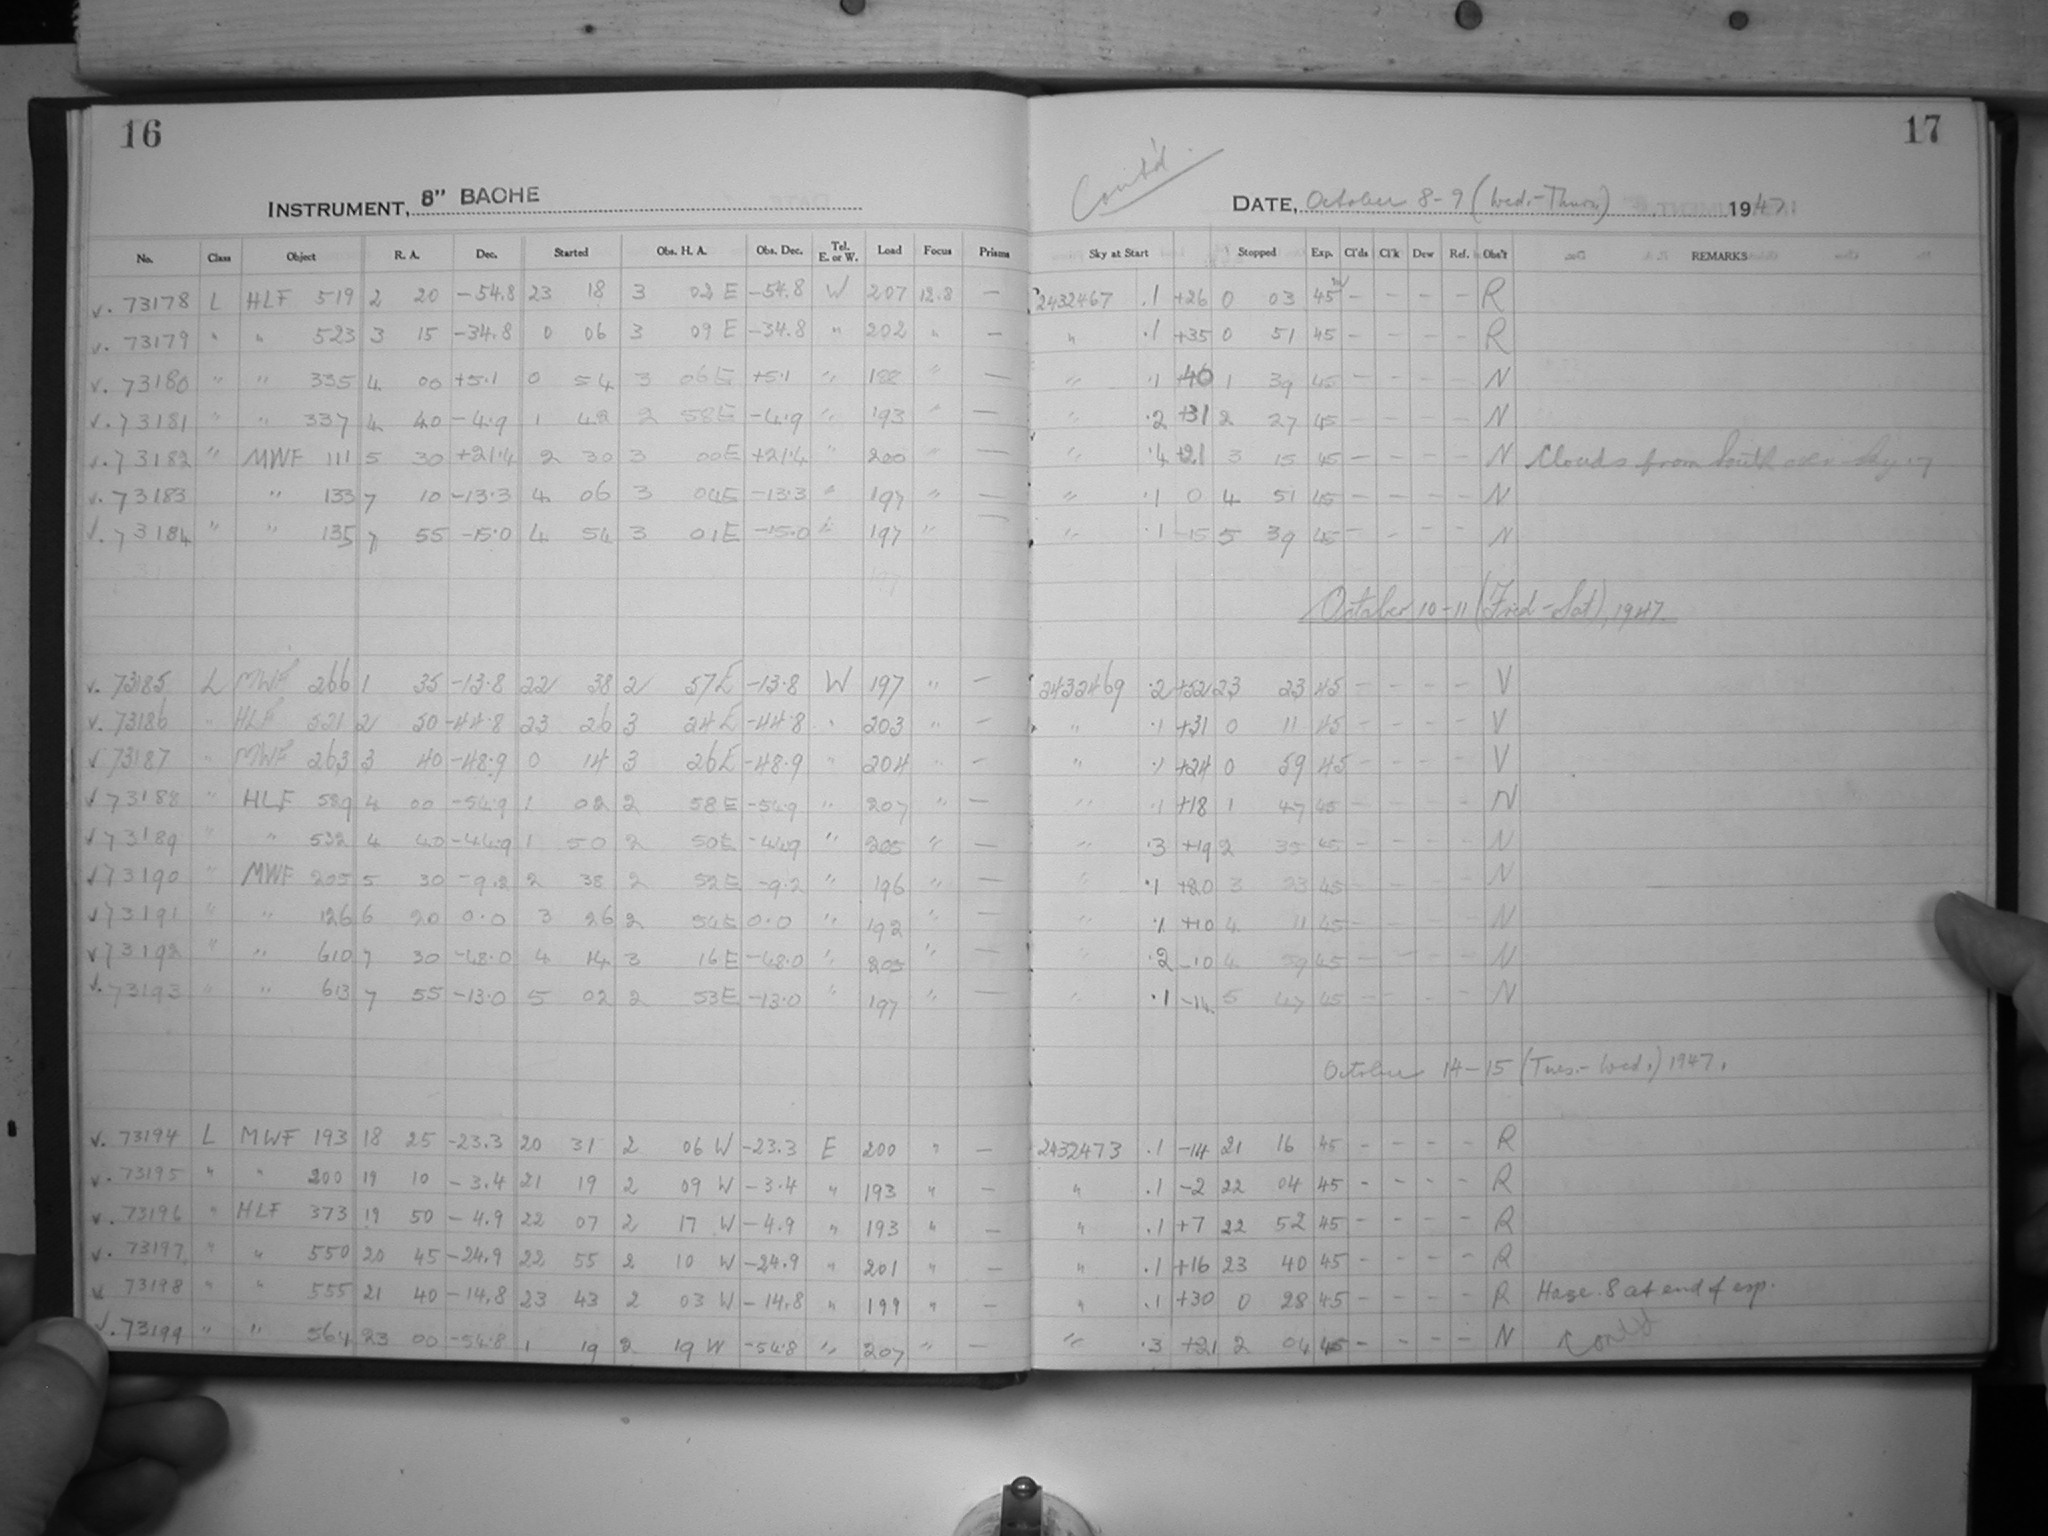 16
INSTRUMENT, 8" BACHE
No. Class Object R. A. Dec. Started Obs. H. A. Obs. Dec. Tel. E. or W. Load Focus Prisms
v. 73178 L HLF 519 2 20 -54.8 23 18 3 02 E -54.8 W 207 12.8 —
v. 73179 " " 523 3 15 -34.8 0 06 3 09 E -34.8 " 202 " —
v. 73180 " " 335 4 00 +5.1 0 54 3 06 E +5.1 " 188 " —
v. 73181 " " 337 4 40 -4.9 1 42 2 58 E -4.9 " 193 " —
v. 73182 " MWF 111 5 30 +21.4 2 30 3 00 E +21.4 " 200 " —
v. 73183 " 133 7 10 -13.3 4 06 3 04 E -13.3 " 197 " —
v. 73184 " " 135 7 55 -15.0 4 54 3 01 E -15.0 " 197 " —
v. 73185 L MWF 266 1 35 -13.8 22 38 2 57 E -13.8 W 197 " —
v. 73186 " HLF 521 2 50 -44.8 23 26 3 24 E -44.8 " 203 " —
v 73187 " MWF 263 3 40 -48.9 0 14 3 26 E -48.9 " 204 " —
v 73188 " HLF 529 4 00 -54.9 1 02 2 58 E -54.9 " 207 " —
v 73189 " " 532 4 40 -44.9 1 50 2 50 E -44.9 " 205 " —
v 73190 " MWF 205 5 30 -9.2 2 38 2 52 E -9.2 " 196 " —
v 73191 " " 126 6 20 0.0 3 26 2 54 E 0.0 " 192 " —
v 73192 " " 610 7 30 -48.0 4 14 3 16 E -48.0 " 205 " —
v. 73193 " " 613 7 55 -13.0 5 02 2 53 E -13.0 " 197 " —
v. 73194 L MWF 193 18 25 -23.3 20 31 2 06 W -23.3 E 200 " —
v. 73195 " " 200 19 10 -3.4 21 19 2 09 W -3.4 " 193 " —
v. 73196 " HLF 373 19 50 -4.9 22 07 2 17 W -4.9 " 193 " —
v. 73197 " " 550 20 45 -24.9 22 55 2 10 W -24.9 " 201 " —
v 73198 " " 555 21 40 -14.8 23 43 2 03 W -14.8 " 199 " —
v. 73199 " " 564 23 00 -54.8 1 19 2 19 W -54.8 " 207 " —
17
Cont'd.
DATE, October 8-9 (Wed.-Thurs) 1947
Sky at Start Stopped Exp. Cl'ds Cl'k Dew Ref. Obs'r REMARKS
2432467 .1 +26 0 03 45m — — — — R
" .1 +35 0 51 45 — — — — R
" .1 +40 1 39 45 — — — — N
" .2 +31 2 27 45 — — — — N
" .4 +21 3 15 45 — — — — N Clouds from South over sky .7
" .1 0 4 51 45 — — — — N
" .1 -15 5 39 45 — — — — N
October 10-11 (Frid-Sat), 1947.
2432469 .2 +52 23 23 45 — — — — V
" .1 +31 0 11 45 — — — — V
" .1 +24 0 59 45 — — — — V
" .1 +18 1 47 45 — — — — N
" .3 +19 2 35 45 — — — — N
" .1 +20 3 23 45 — — — — N
" .1 +10 4 11 45 — — — — N
" .2 -10 4 59 45 — — — — N
" .1 -14 5 47 45 — — — — N
October 14-15 (Tues.-Wed.) 1947.
2432473 .1 -14 21 16 45 — — — — R
" .1 -2 22 04 45 — — — — R
" .1 +7 22 52 45 — — — — R
" .1 +16 23 40 45 — — — — R
" .1 +30 0 28 45 — — — — R Haze .8 at end of exp.
" .3 +21 2 04 45 — — — — N Cont'd